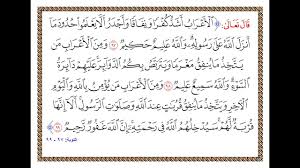 قَالَ تَعَالَى: ﴿ ٱلْأَعْرَابُ أَشَدُّ كُفْرًا وَنِفَاقًا وَأَجْدَرُ أَلَّا يَعْلَمُوا۟ حُدُودَ مَآ
أَنزَلَ ٱللَّهُ عَلَىٰ رَسُولِهِۦ ۗ وَٱللَّهُ عَلِيمٌ حَكِيمٌ ﴿٩٧﴾ وَمِنَ ٱلْأَعْرَابِ مَن
يَتَّخِذُ مَا يُنفِقُ مَغْرَمًا وَيَتَرَبَّصُ بِكُمُ ٱلدَّوَآئِرَ ۚ عَلَيْهِمْ دَآئِرَةُ
ٱلسَّوْءِ ۗ وَٱللَّهُ سَمِيعٌ عَلِيمٌ ﴿٩٨﴾ وَمِنَ ٱلْأَعْرَابِ مَن يُؤْمِنُ بِٱللَّهِ وَٱلْيَوْمِ
ٱلْآخِرِ وَيَتَّخِذُ مَا يُنفِقُ قُرُبَٰتٍ عِندَ ٱللَّهِ وَصَلَوَٰتِ ٱلرَّسُولِ ۚ أَلَآ إِنَّهَا
قُرْبَةٌ لَّهُمْ ۚ سَيُدْخِلُهُمُ ٱللَّهُ فِى رَحْمَتِهِۦٓ ۗ إِنَّ ٱللَّهَ غَفُورٌ رَّحِيمٌ ﴿٩٩﴾ ﴾
التوبة: ٩٧ - ٩٩